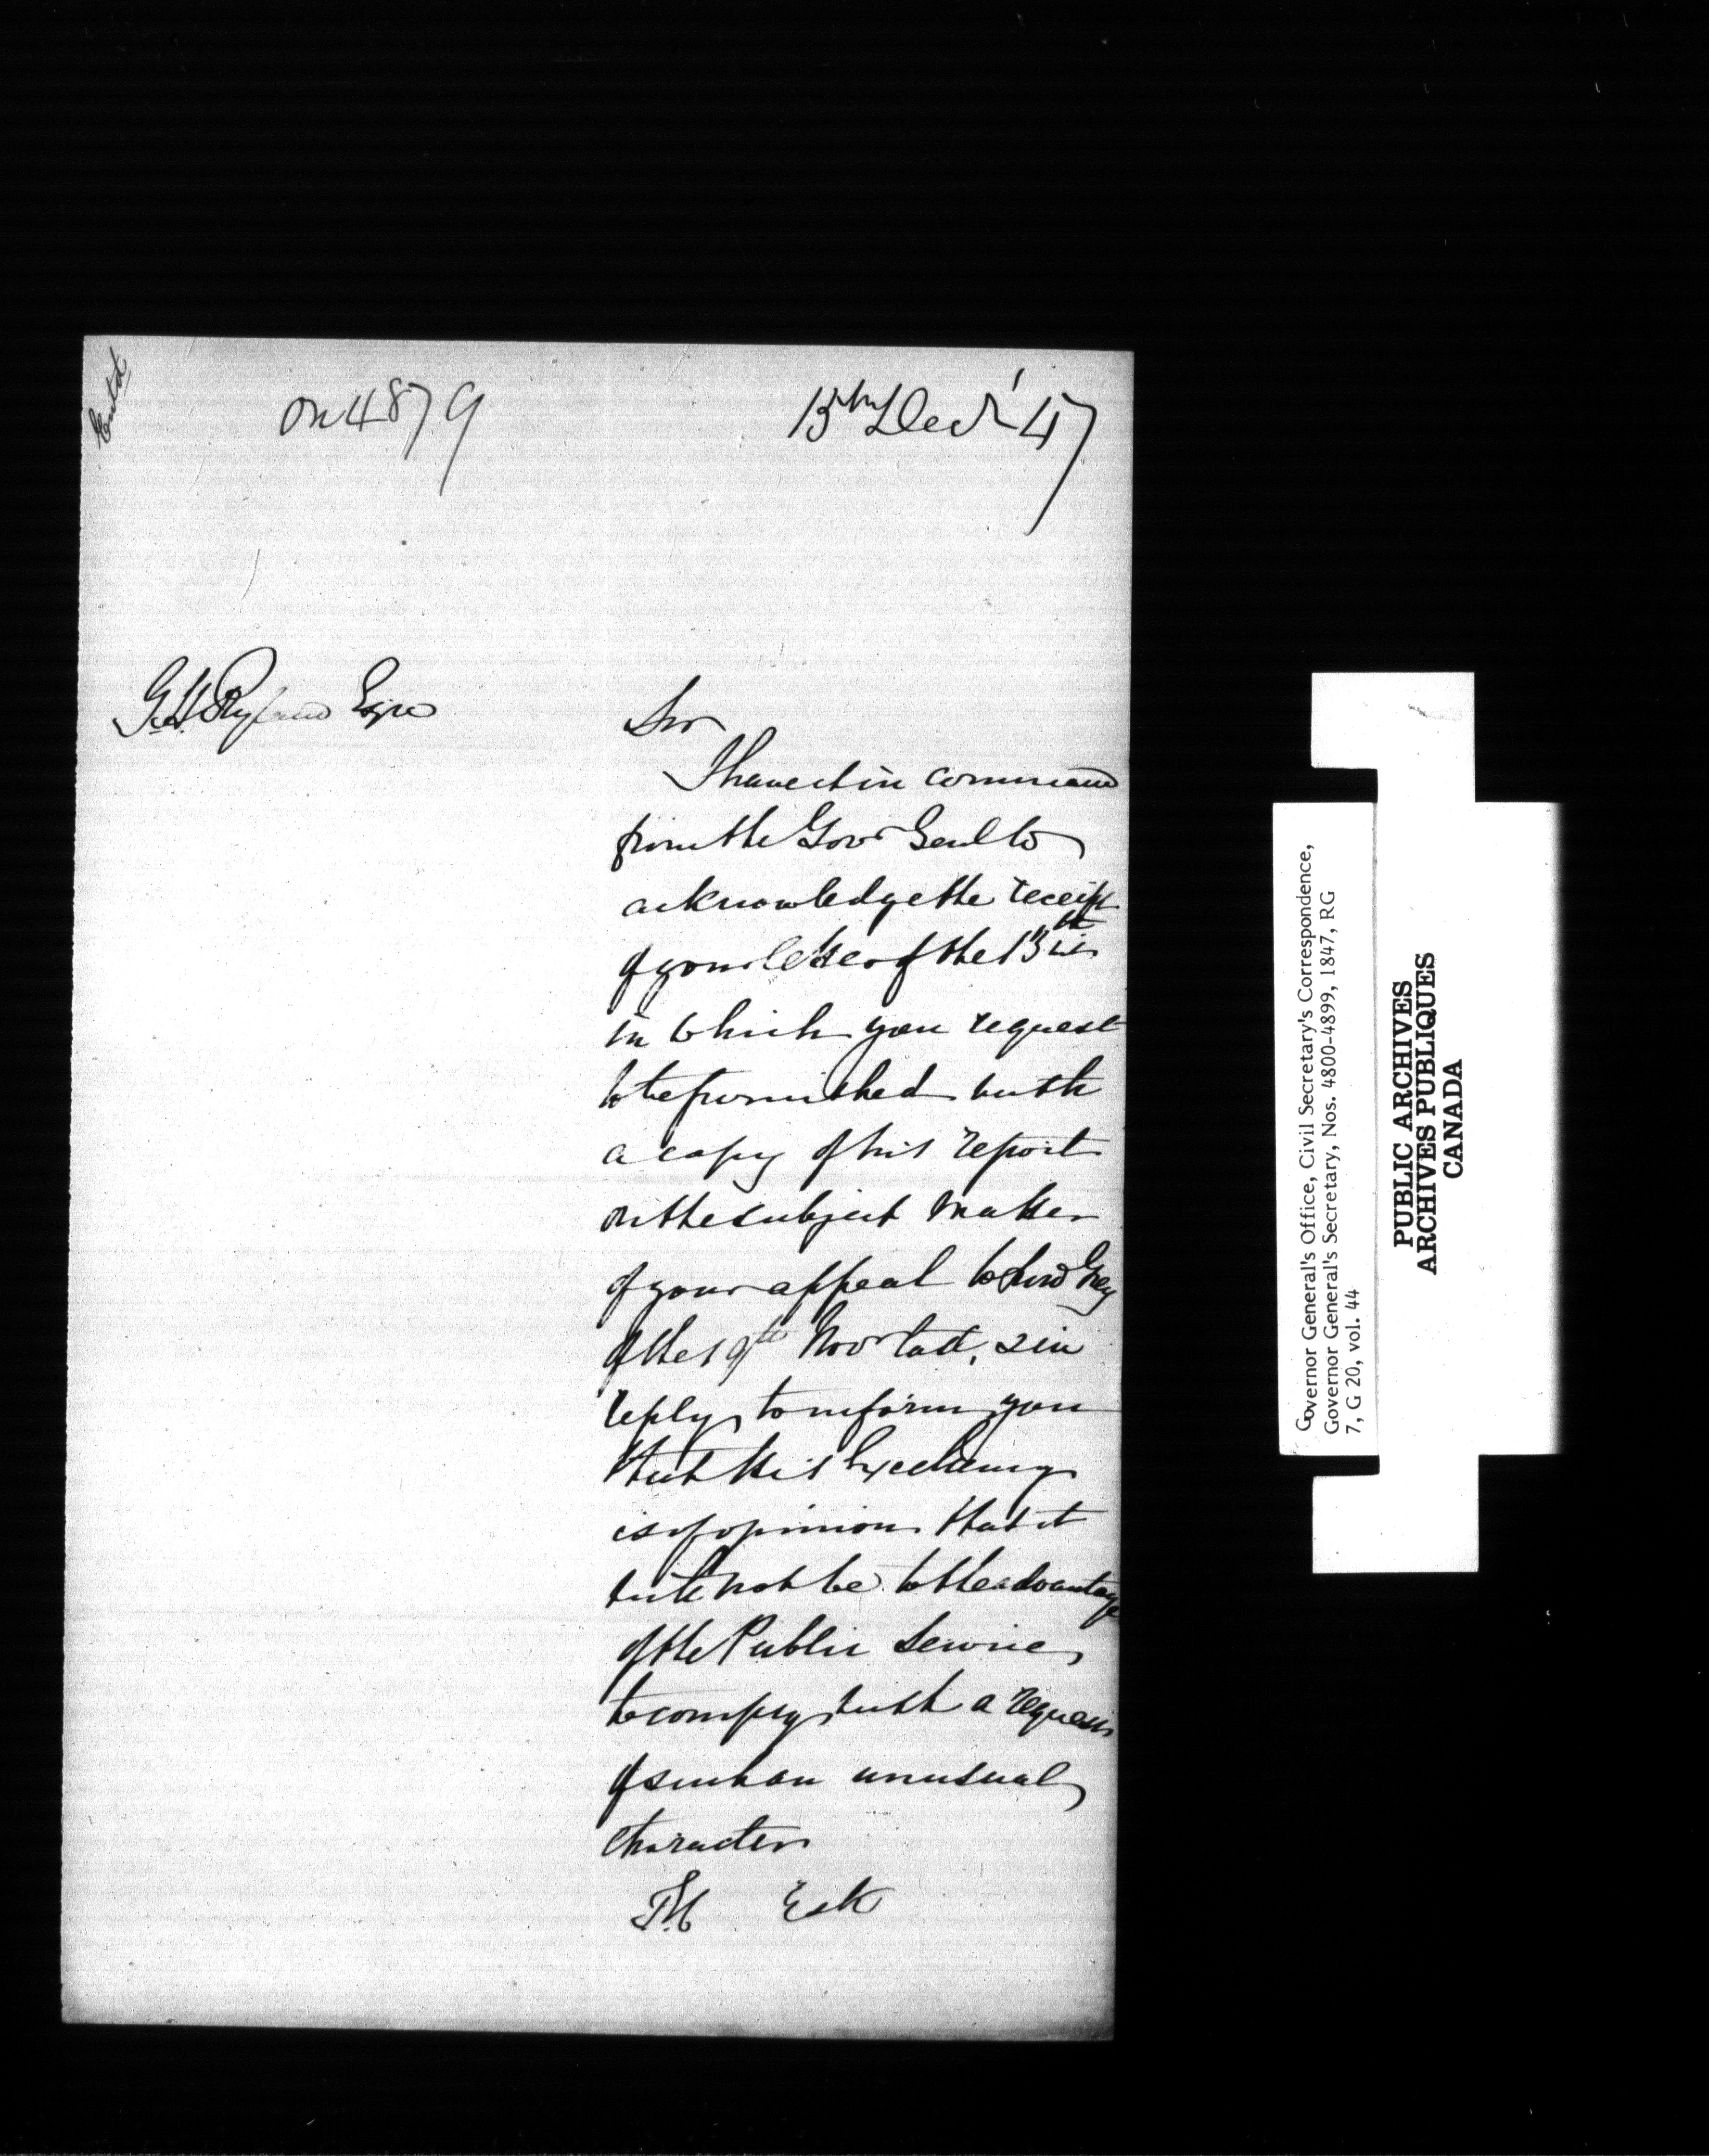 Entd
on 4879
15th Decr '47
G. H. Ryland Esqre
Sir
I have it in command
from the Govr Genl to
acknowledge the receipt
of your letter of the 13th
in which you request
to be furnished with
a copy of his report
on the subject matter
of your appeal to Lord Grey
of the 19th Novr last, & in
reply to inform you
that His Excellency
is of opinion that it
will not be to the advantage
of the Public Service
to comply with a request
of such an unusual
character
Governor General's Office, Civil Secretary's Correspondence,
Governor General's Secretary, Nos. 4800-4899, 1847, RG
7, G 20, vol. 44
PUBLIC ARCHIVES
ARCHIVES PUBLIQUES
CANADA